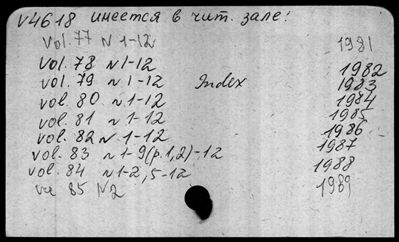 V4618 имеется в чит. зале!
Vol. 77 N 1-12 1981
Vol. 78 N 1-12 1982
vol. 79 N 1-12 Index 1983
vol. 80 N 1-12 1984
vol. 81 N 1-12 1985
vol. 82 N 1-12 1986
vol. 83 N 1-9(p.1,2)-12 1987
vol. 84 N 1-2, 5-12 1988
85 N2 1989